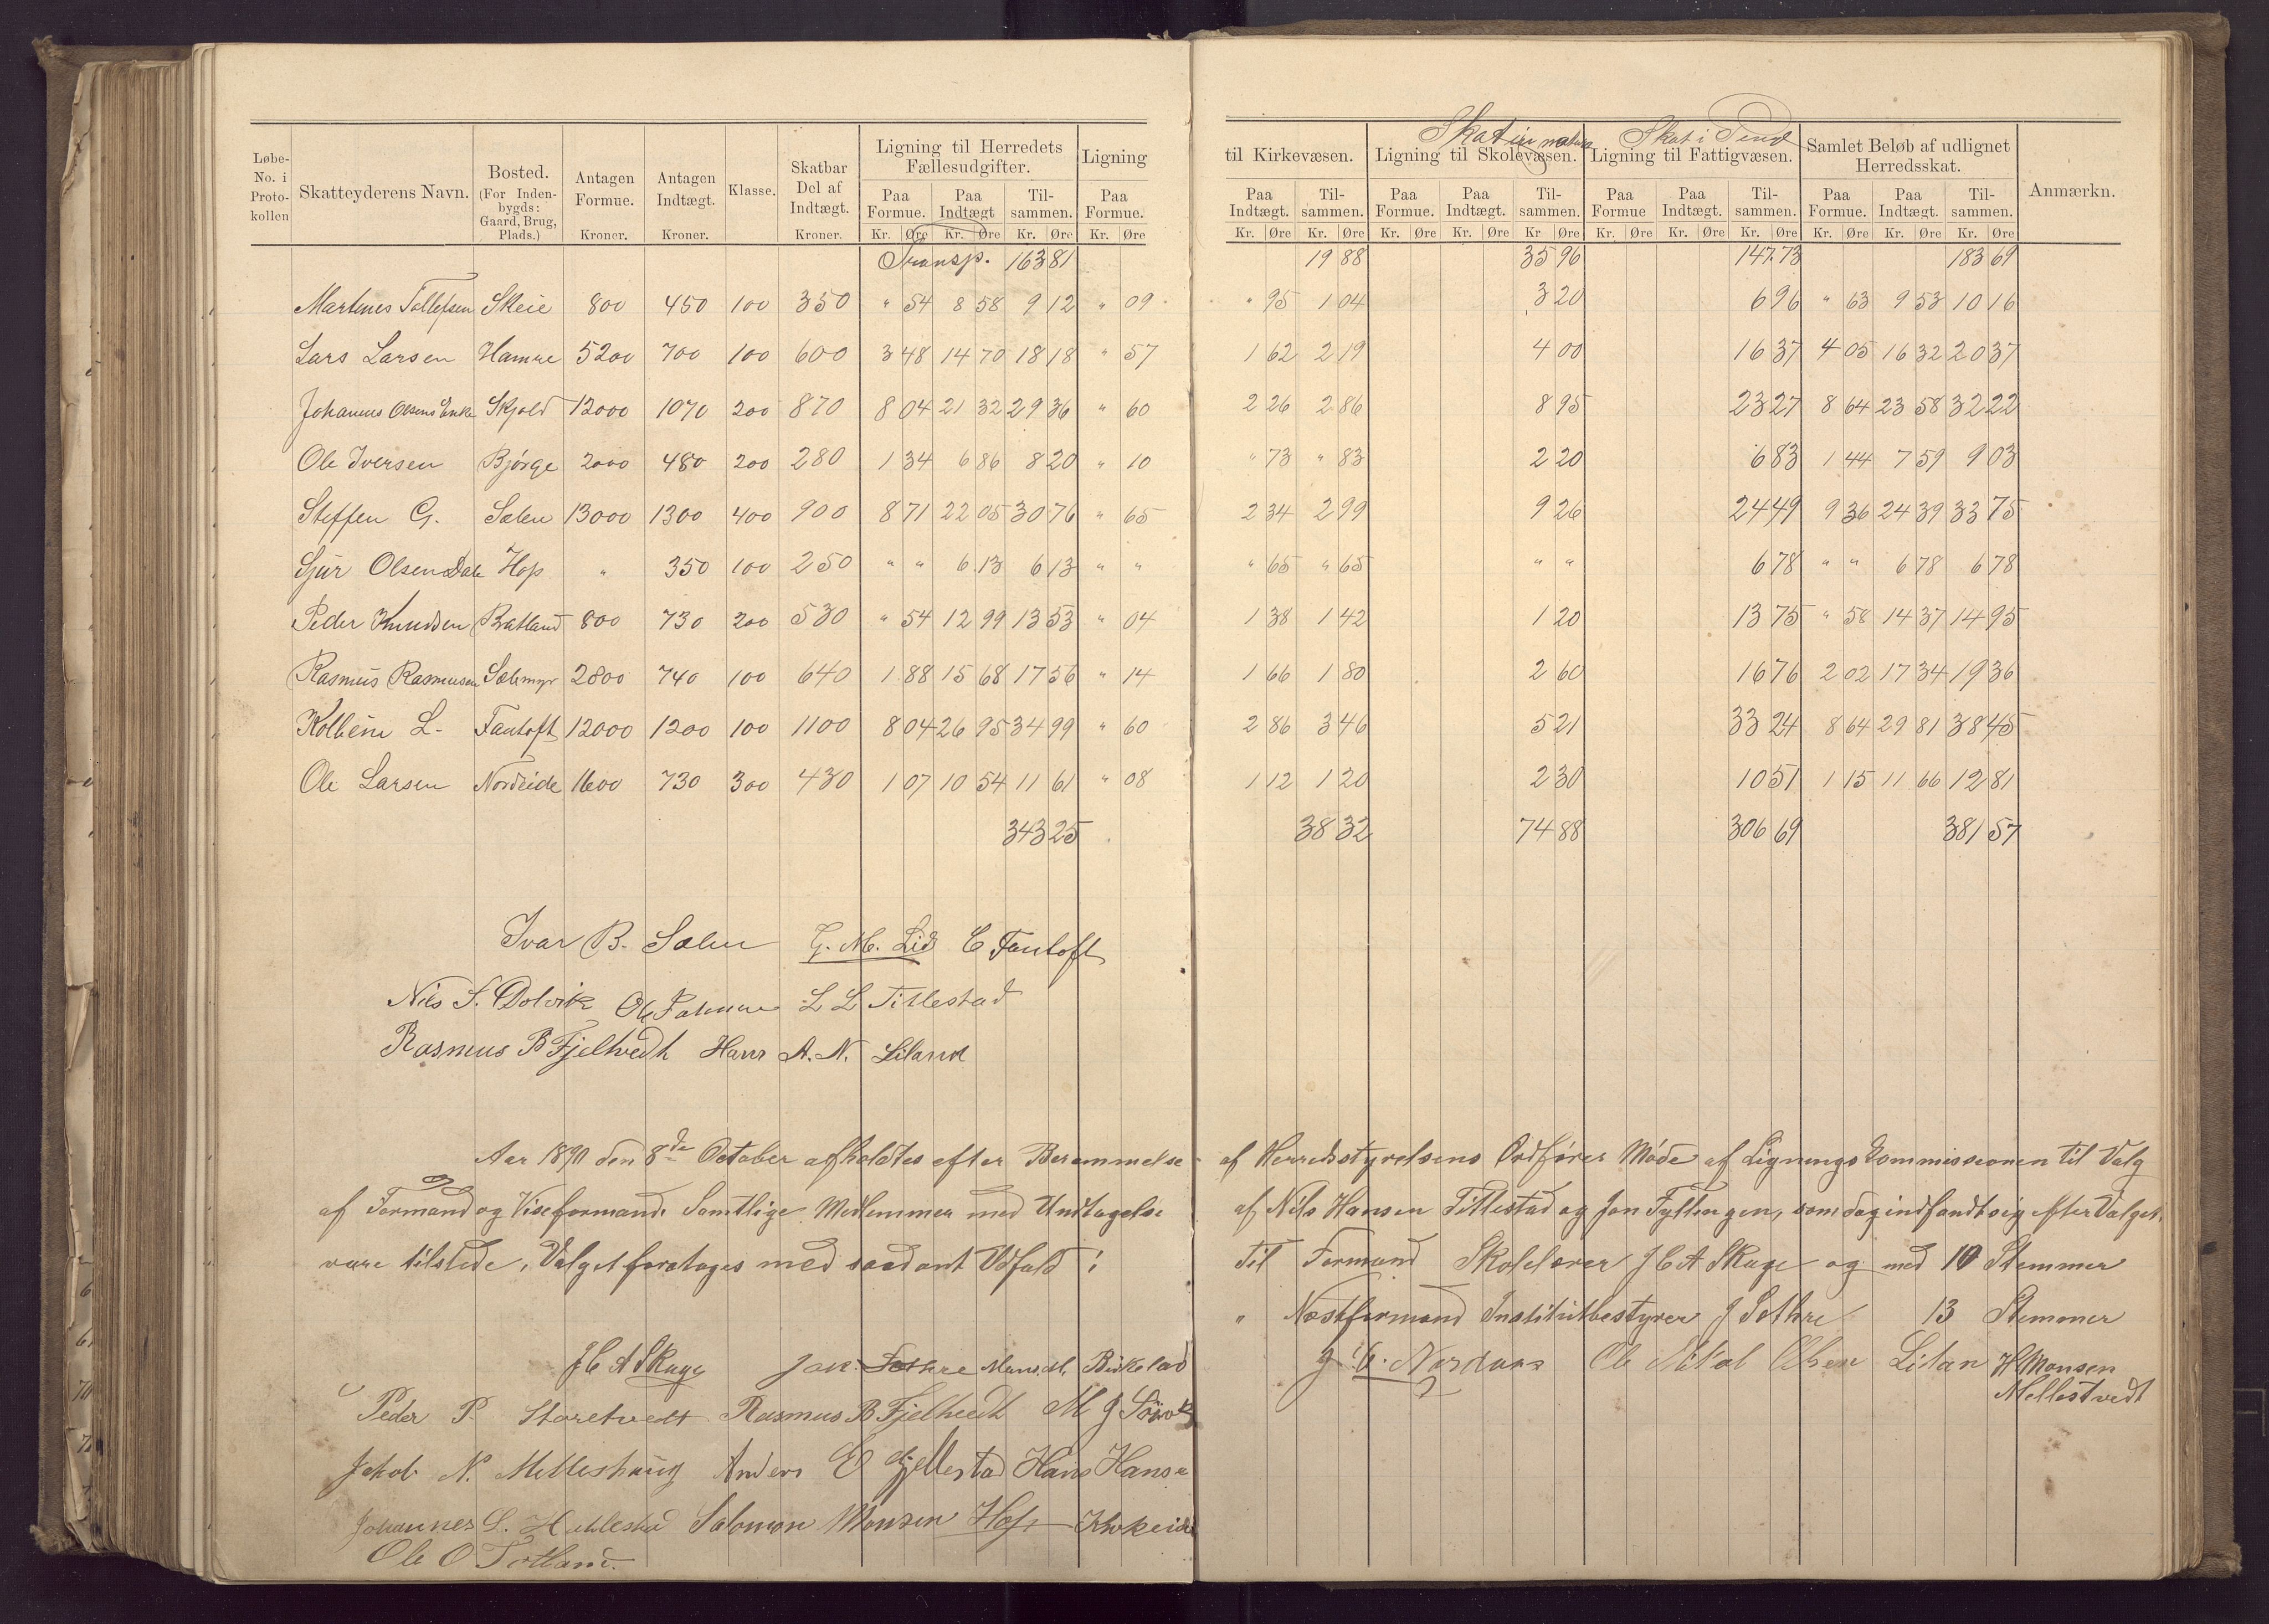 Løbe-No. i Proto-kollen | Skatteyderens Navn. | Bosted. (For Inden-bygds: Gaard, Brug, Plads.) | Antagen Formue. Kroner. | Antagen Indtægt. Kroner. | Klasse. | Skatbar Del af Indtægt. Kroner. | Ligning til Herredets Fællesudgifter. Paa Formue. Kr. Øre | Paa Indtægt Kr. Øre | Til-sammen. Kr. Øre | Ligning Paa Formue. Kr. Øre | til Kirkevæsen. Paa Indtægt. Kr. Øre | Til-sammen. Kr. Øre | Skat in natura Ligning til Skolevæsen. Paa Formue. Kr. Øre | Paa Indtægt. Kr. Øre | Til-sammen. Kr Øre | Skat i Ligning til Fattigvæsen. Paa Formue Kr. Øre | Paa Indtægt. Kr. Øre | Til-sammen. Kr. Øre | Samlet Beløb af udlignet Herredsskat. Paa Formue. Kr. Øre | Paa Indtægt. Kr. Øre | Til-sammen. Kr. Øre | Anmærkn.
Transp. 163 81 19 88 35 96 147 73 183 69
Martines Tollefsen Skeie 800 450 100 350 " 54 8 58 9 12 " 09 " 95 1 04 3 20 6 96 " 63 9 53 10 16
Lars Larsen Hamre 5200 700 100 600 3 48 14 70 18 18 " 57 1 62 2 19 4 00 16 37 4 05 16 32 20 37
Johannes Olsens Enke Skjold 12000 1070 200 870 8 04 21 32 29 36 " 60 2 26 2 86 8 95 23 27 8 64 23 58 32 22
Ole Iversen Bjørge 2000 480 200 280 1 34 6 86 8 20 " 10 " 73 " 83 2 20 6 83 1 44 7 59 9 03
Steffen G. Sælen 13000 1300 400 900 8 71 22 05 30 76 " 65 2 34 2 99 9 26 24 49 9 36 24 39 33 75
Sjur Olsen Dale Hop " 350 100 250 " " 6 13 6 13 " " " 65 " 65 " " 6 78 " " 6 78 6 78
Peder Knudsen Bratland 800 730 200 530 " 54 12 99 13 53 " 04 1 38 1 42 1 20 13 75 " 58 14 37 14 95
Rasmus Rasmusen Sælemyr 2800 740 100 640 1 88 15 68 17 56 " 14 1 66 1 80 2 60 16 76 2 02 17 34 19 36
Kolbein L. Fantoft 12000 1200 100 1100 8 04 26 95 34 99 " 60 2 86 3 46 5 21 33 24 8 64 29 81 38 45
Ole Larsen Nordeide 1600 730 300 430 1 07 10 54 11 61 " 08 1 12 1 20 2 30 10 51 1 15 11 66 12 81
343 25 38 32 74 88 306 69 381 57
Ivar B. Sælen G. M. Lid C Fantoft
Nils S. Dolvik Ole L L Tillestad
Rasmus B Fjelhvedt Hans A. N. Liland
Aar 1890 den 8de October afholdtes efter Berammelse af Herredsstyrelsens Ordfører Møde af Lignings Kommissionen til Valg
af Formand og Viseformand. Samtlige Medlemmer med Undtagelse af Nils Hansen Tillestad og Jon Fyllingen, som dog indfandt sig efter Valget.
vare tilstede. Valget foretoges med saadant Udfald: Til Formand Skolelærer J C A Skage og med 10 Stemmer
" Næstformand Institutbestyrer J Sothre 13 Stemmer
J C A Skage Jak. Sothre Mons M. Birkelad J. C. Nordaas Ole Olsen Litan H Monsen
Mellestvedt
Peder P. Storetvedt Rasmus B Fjelhvedt M J
Jakob N. Melleshaug Anders E Gjellestad Hans Hansen
Johannes S. Salomon Monsen Hop Krokeide
Ole O Totland.